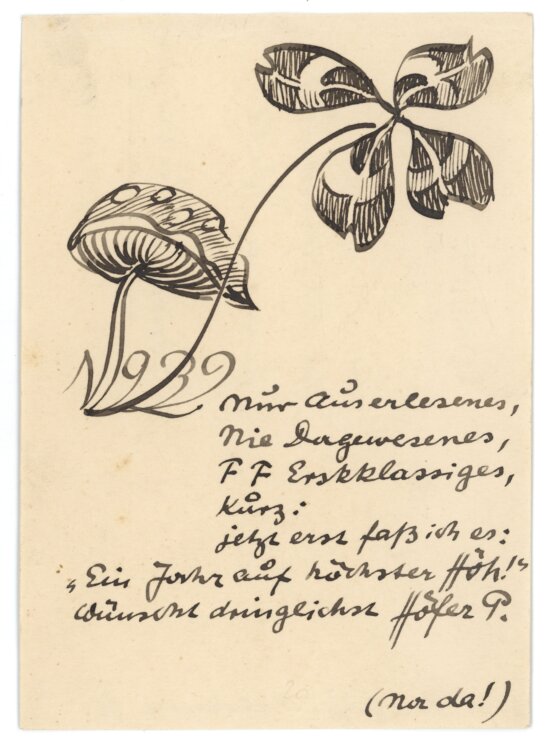 1939
Nur Auserlesenes,
Nie Dagewesenes,
F F Erstklassiges,
Kurz:
jetzt erst faß ich es:
„Ein Jahr auf höchster Höh!"
wünscht dringlichst Höfer P.
(Nor da!)